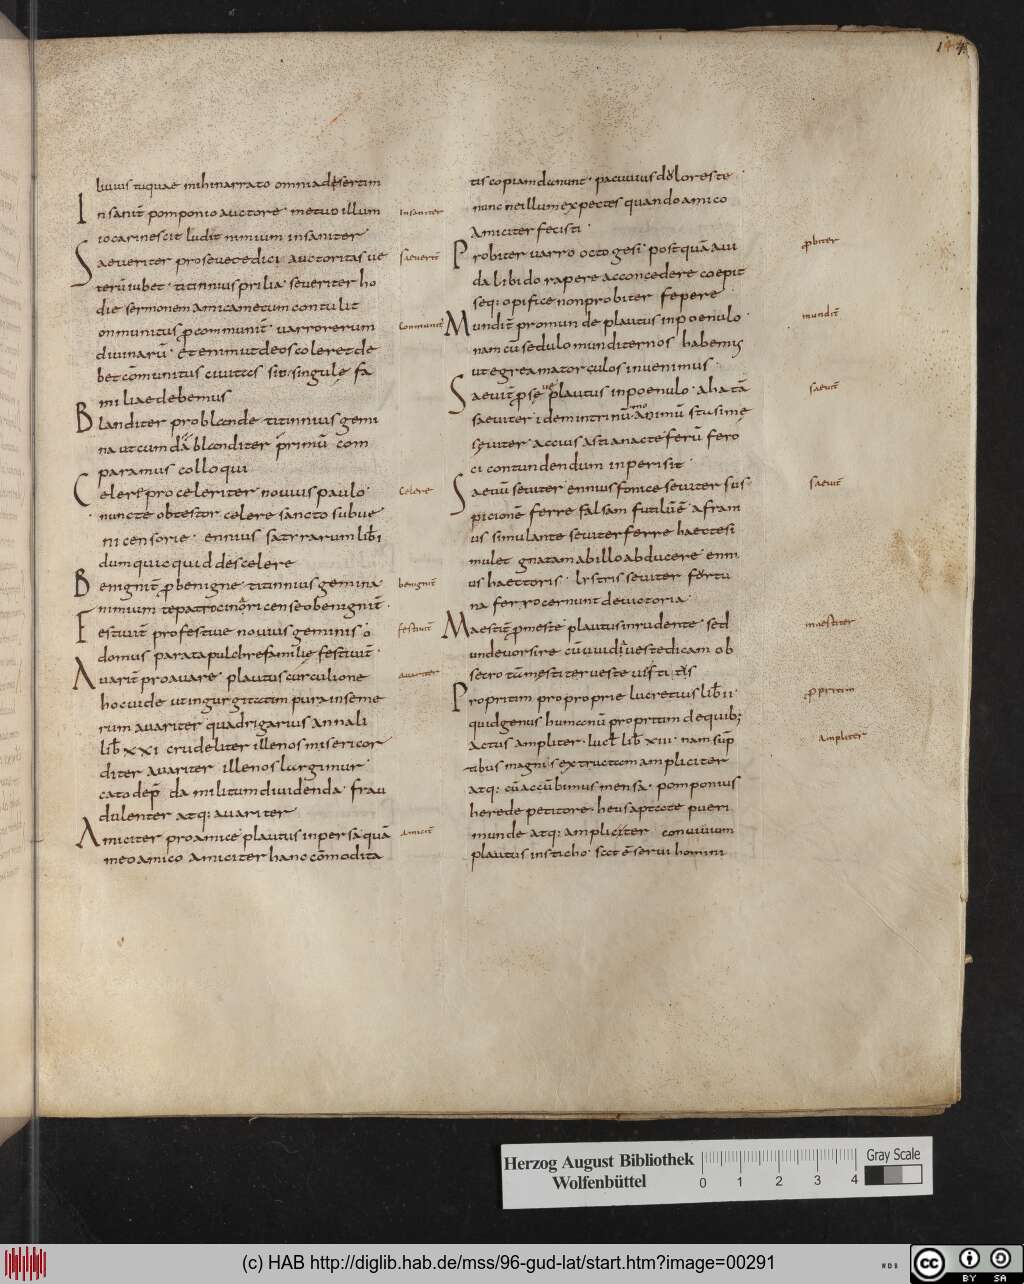 144
livius tuquae mihi narrato omnia desertim
Insanit̄ pomponio auctore · metuo illum
iocari nescit ludit nimium insaniter
Saeveriter pro severe dici auctoritas ve
terū iubet · titinnius prilia · severiter ho
die sermonem amica mecum contulit
onmunitus p̱ communit̄ · varro rerum
divinarū · et enim ut deos colere t de
bet cōmunitus civitas sit · singulę fa
miliae debemus
Blanditer pro blande titinnius gemi
na ut cum
blanditer primū com
paramus colloqui
Celere pro celeriter novius paulo ·
nunc te obtestor celere sancto subve
ni censorie · ennius satyrarum lib̄ i
dum quicquid des celere
Benignit̄ p̱ benigne · titinnius gemina ·
nimium te
censeo benignit̄ ·
Festivit̄ pro festive novius geminis ó
domus parata pulchre familię festivit̄ ·
Avarit̄ pro avare · plautus curculione
hocvide ut ingurgitatim pura in seme
rum avariter quadrigarius annali
lib̄ xxi crudeliter ille nos misericor
diter avariter ille nos largimur ·
cato dep̄ da militum dividenda · frau
dulenter atq: avariter
Amiciter pro amice plautus in persa quā
meo amico amiciter hanc cōmodita
Insaniter
saeverit̄
Communit̄
Celere
benignit̄
festivit̄
avariter
Amicit̄
tis copiam danunt · pacuvius dolor este ·
nunc ne illum expectes quando amico
Amiciter fecisti ·
Probiter varro octogesī · postquā avi
da libido rapere ac concedere coepit
seq: opifice non probiter fepere ·
Mundit̄ pro munde plautus in poenulo ·
nam cū sedulo munditer nos habemus
ut egre amatorculos invenimus ·
Saevit̄ p̱ sęve plautus in poenulo · aha tā
saeviter · idem in trinūmo · animū
sęviter · accius astianacte ferū fero
ci contundendum inperis it ·
Saeviter ennius fonice seviter sus
picionē ferre falsam futilūē afram
us simulante seviter ferre haec te si
mulet gnatam ab illo abducere enni
us haectoris · lystris seviter fortu
na ferro cernunt de victoria ·
Maestit̄ p̱ meste plautus in rudente · sed
unde vorsire
vestedicam ob
secro tū mestiter vestitis
Propritim pro proprie lucretius lib̄ ii ·
quid genus humanū propritim de quib;
Actus ampliter · lucl̄ lib̄ xiii · nam sūp
tibus magnis extructam ampliciter
atq: cū accūbimus mensa · pomponius
herede petitore · heus aptcote pueri
munde atq: ampliciter convivium
plautus in sticho · scet ē servi homini
p̱biter
mundit̄
saevit̄
saevit̄
maestiter
p̱pritim
Ampliter
Herzog August Bibliothek
Wolfenbüttel
0 1 2 3 4
Gray Scale
(c) HAB http://diglib.hab.de/mss/96-gud-lat/start.htm?image=00291
WDB
cc BY SA